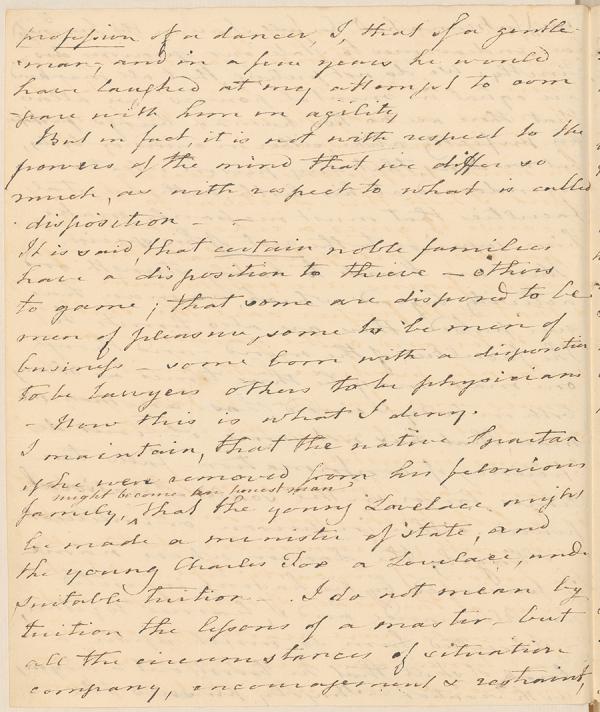 profession of a dancer, I, that of a gentle-
-man, and in a few years he would
have laughed at my attempt to com
-pare with him in agility,
But in fact, it is not with respect to the
powers of the mind that we differ so
much, as with respect to what is called
disposition - -
It is said, that certain noble families
have a disposition to thieve - others
to game; that some are disposed to be
men of pleasure, some to be men of
business - some born with a disposition
to be lawyers others to be physicians
- Now this is what I deny.
I maintain, that the native Spartan
if he were removed from his felonious
might become an honest man
family, ^ that the young Lovelace might
be made a minister of state, and
the young Charles Fox a Lovelace, under
suitable tuition - . I do not mean by
tuition the lessons of a master - but
all the circumstances of situation
company, encouragement & restraint,